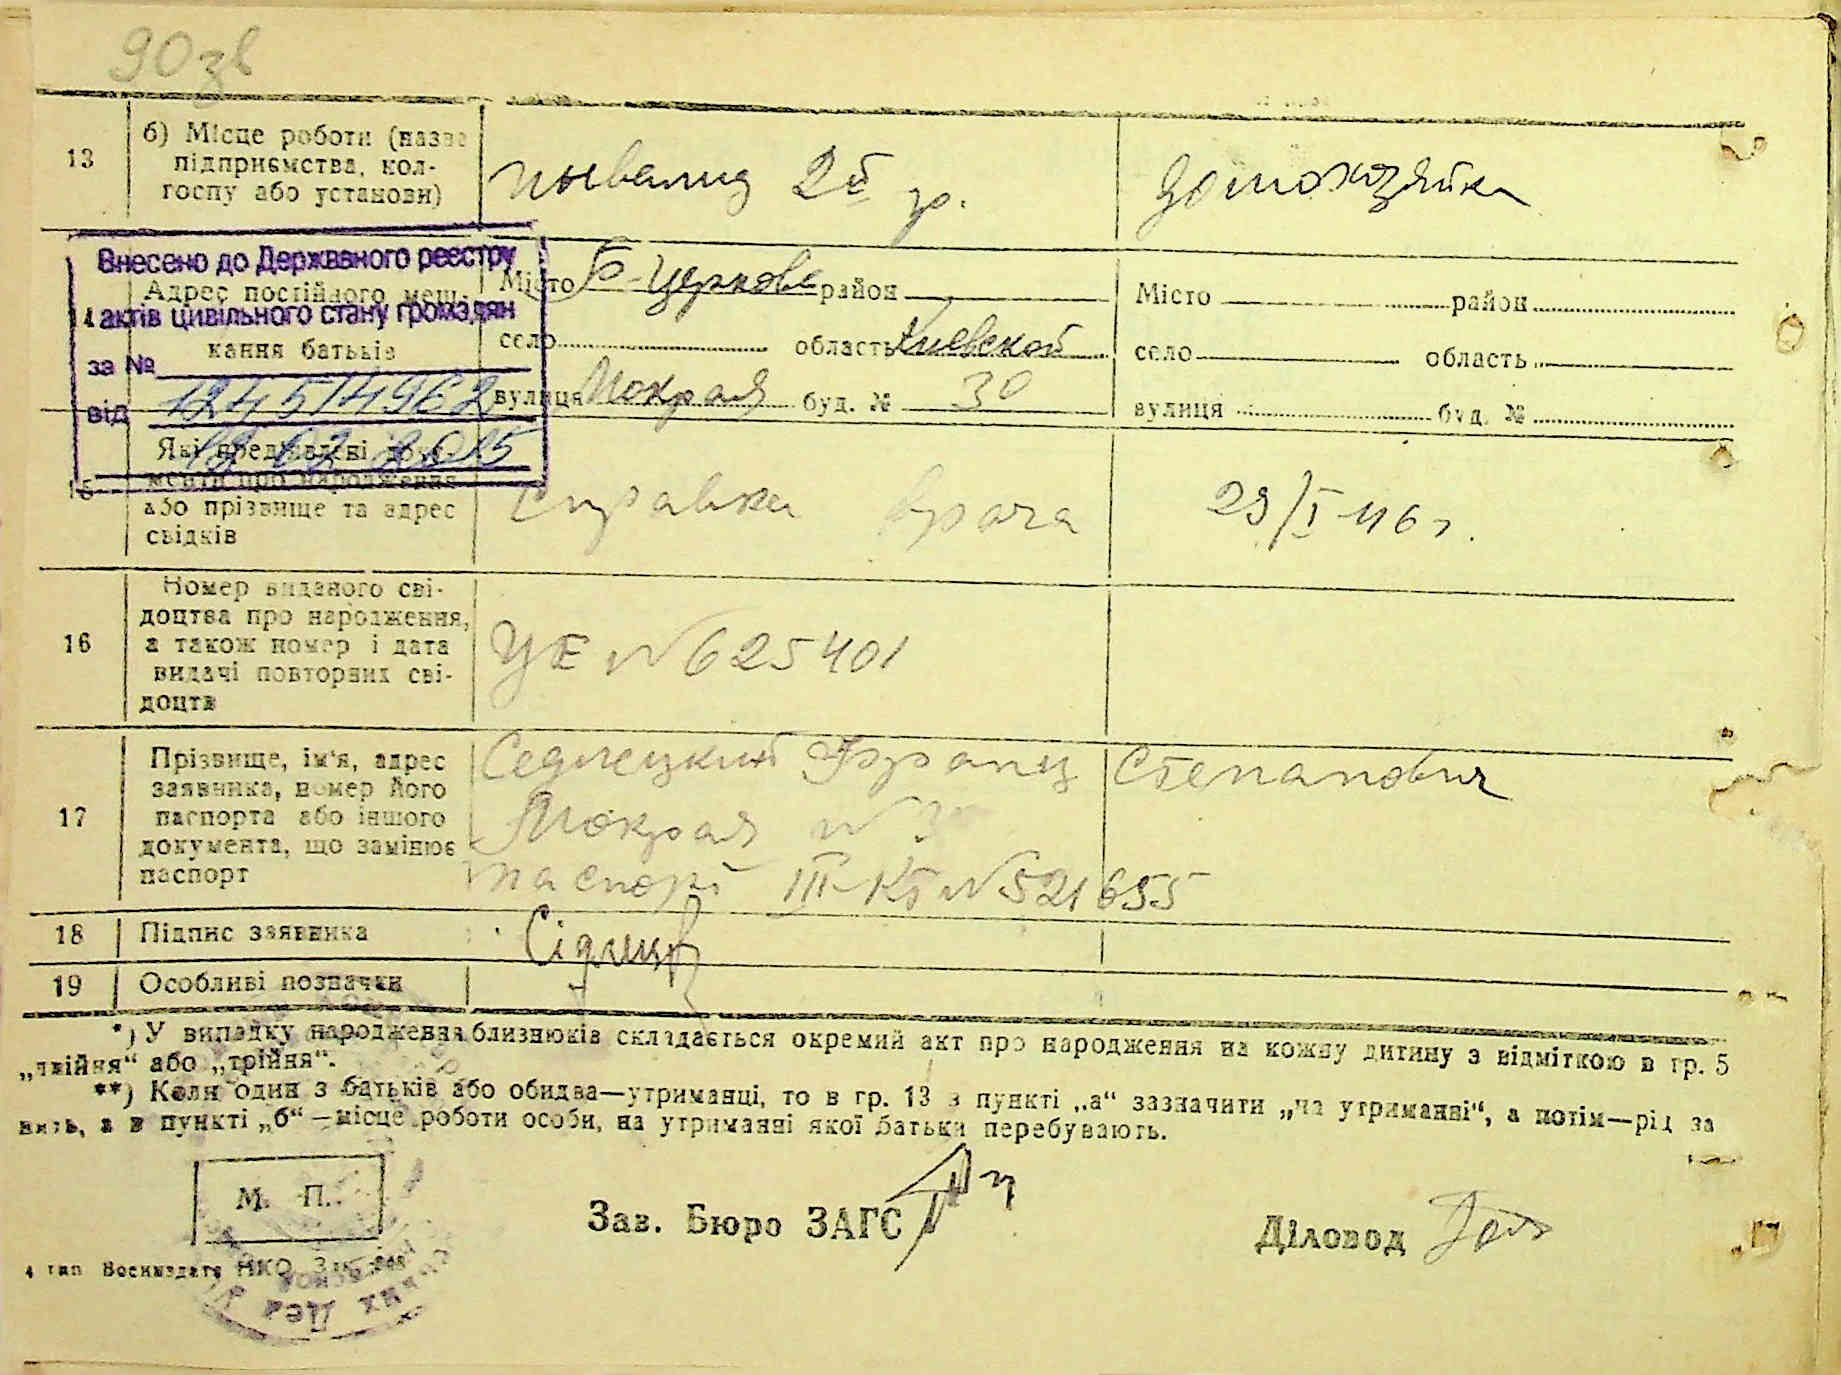 90 зв
13
б) Місце роботи (назва
підприємства, кол-
госпу або установи)
инвалид 2й гр.
домохозяйка
Внесено до Державного реєстру
актів цивільного стану громадян
за №
124514962
від 12 02 2015
Адрес постійного меш-
кання батьків
Місто Б-Церковь район
село область Киевской
вулиця Мокрая буд. № 30
Місто район
село область
вулиця буд. №
15
Які пред'явлені доку-
менти про народження
або прізвище та адрес
свідків
Справка врача
29/I-46 г.
16
Номер виданого сві-
доцтва про народження,
а також номер і дата
видачі повторних сві-
доцтв
УЕ №625401
17
Прізвище, ім'я, адрес
заявника, номер його
паспорта або іншого
документа, що замінює
паспорт
Седлецкий Франц Степанович
Мокрая №
паспорт III-КТ №521655
18
Підпис заявника
19
Особливі позначки
*) У випадку народження близнюків складається окремий акт про народження на кожну дитину з відміткою в гр. 5
„двійня“ або „трійня“.
**) Коли один з батьків або обидва—утриманці, то в гр. 13 в пункті „а“ зазначити „на утриманні“, а потім—рід за
нять, а в пункті „б“—місце роботи особи, на утриманні якої батьки перебувають.
М. П.
Зав. Бюро ЗАГС
Діловод
4 тип Воениздата НКО